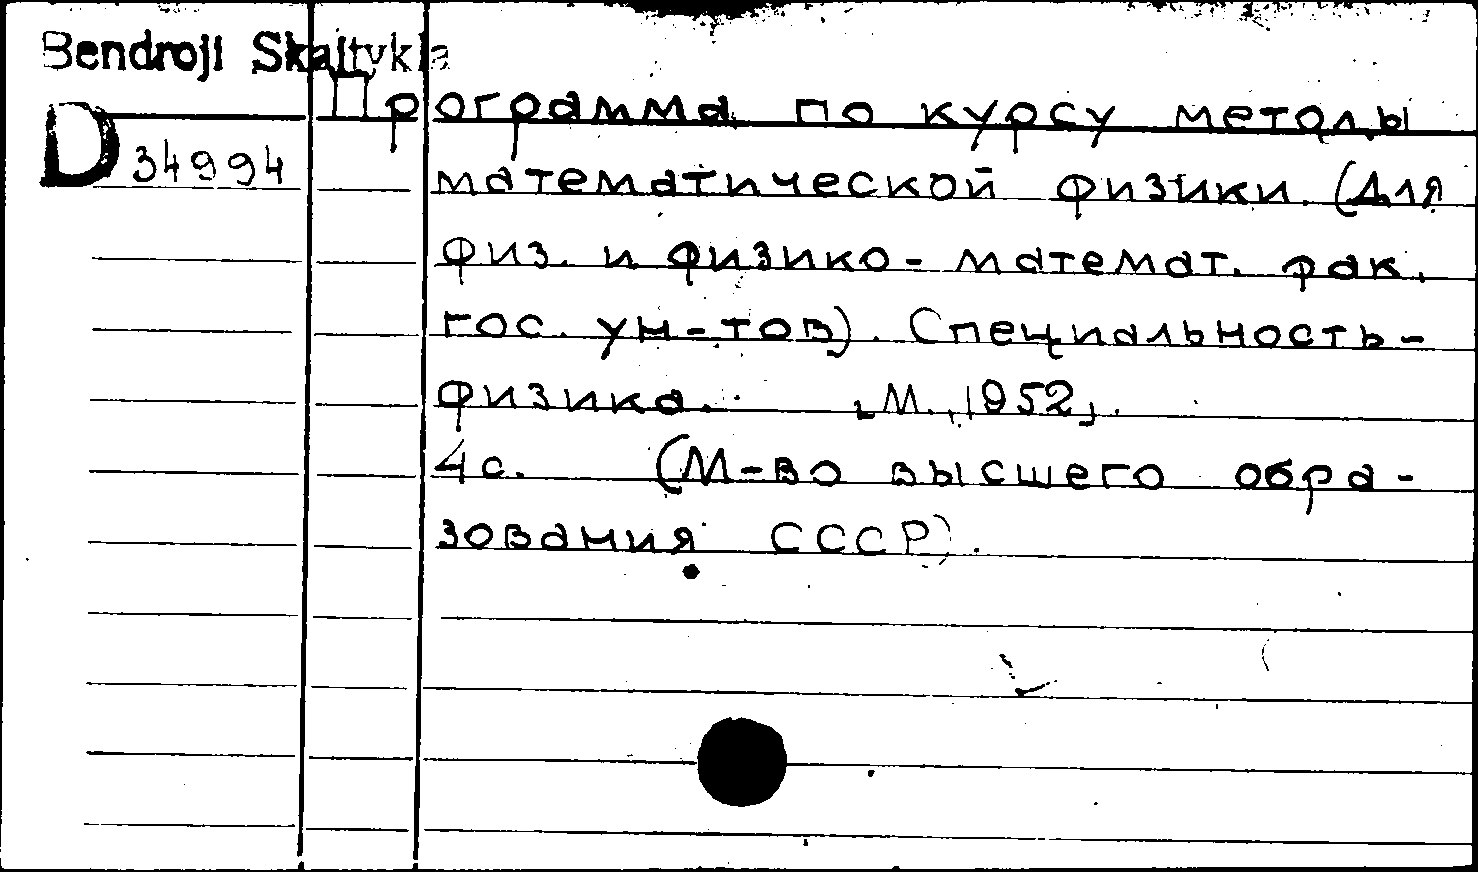 Bendroji Skaitykla
Программа по курсу методы
D 34994
математической физики. (Для
физ. и физико-математ. фак.
гос. ун-тов). Специальность-
физика. [М., 1952].
4с. (М-во высшего обра-
зования СССР).